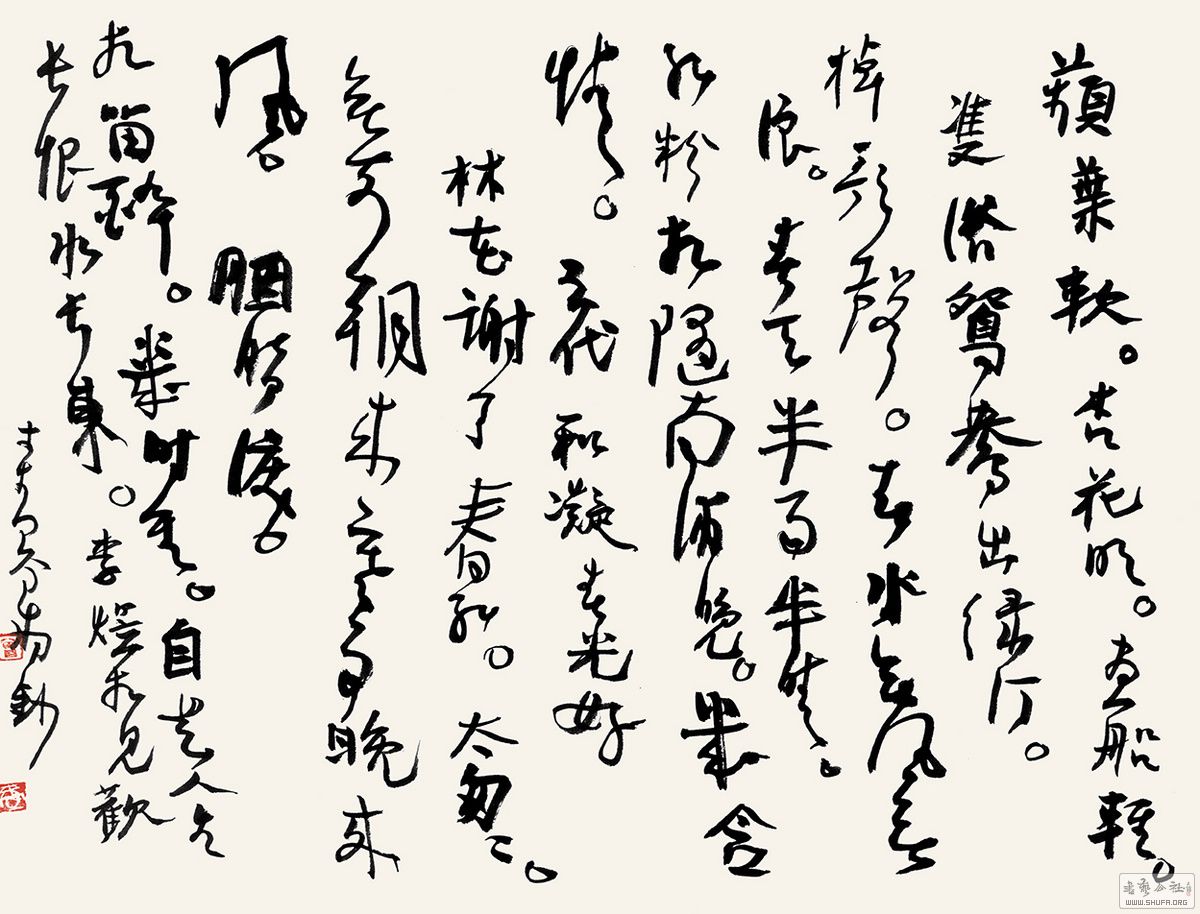 蘋葉軟。杏花明。畫船輕。
雙浴鴛鴦出緑汀。
棹歌聲。春水無風無
浪。春天半雨半晴。
紅粉相隨南浦晚。幾含
情。五代 和凝 春光好
林花謝了春紅。太匆匆。
無奈朝來寒雨晚來
風。胭脂淚。
相留醉。幾時重。自是人生
長恨水長東。李煜相見歡
鈔
書藝公社
WWW.SHUFA.ORG